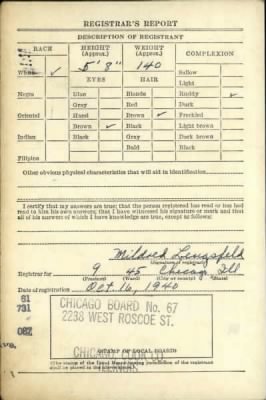 REGISTRAR'S REPORT
DESCRIPTION OF REGISTRANT
RACE HEIGHT (Approx.) WEIGHT (Approx.) COMPLEXION
5' 8" 140 Sallow
White ✓ EYES HAIR Light
Negro Blue Blonde Ruddy ✓
Gray Red Dark
Oriental Hazel Brown ✓ Freckled
Brown ✓ Black Light brown
Indian Black Gray Dark brown
Bald Black
Filipino
Other obvious physical characteristics that will aid in identification
I certify that my answers are true; that the person registered has read or has had
read to him his own answers; that I have witnessed his signature or mark and that
all of his answers of which I have knowledge are true, except as follows:
Mildred
(Signature of registrar)
Registrar for 9 45 Chicago Ill
(Precinct) (Ward) (City or county) (State)
Date of registration Oct. 16, 1940
61
731
CHICAGO BOARD No. 67
2238 WEST ROSCOE ST.
CHICAGO, COOK CO.
STAMP OF LOCAL BOARD
(The stamp of the Local Board having jurisdiction of the registrant
shall be placed in the above space)